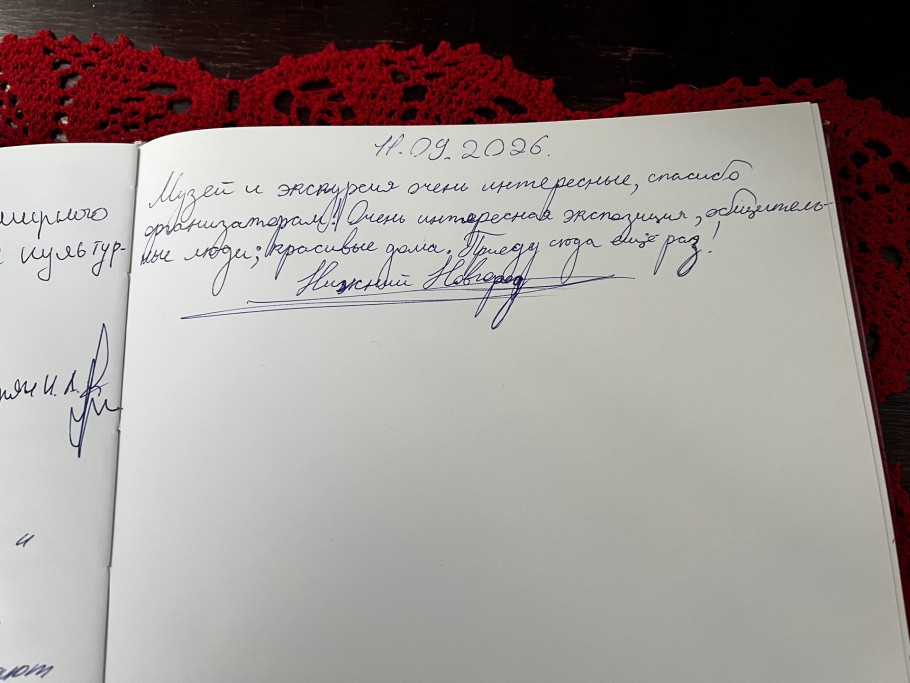 ширного
культур-
и
11.09.2026.
Музей и экскурсия очень интересные, спасибо
организаторам! Очень интересная экспозиция, общитель-
ные люди; красивые дома. Приеду сюда ещё раз!
Нижний Новгород